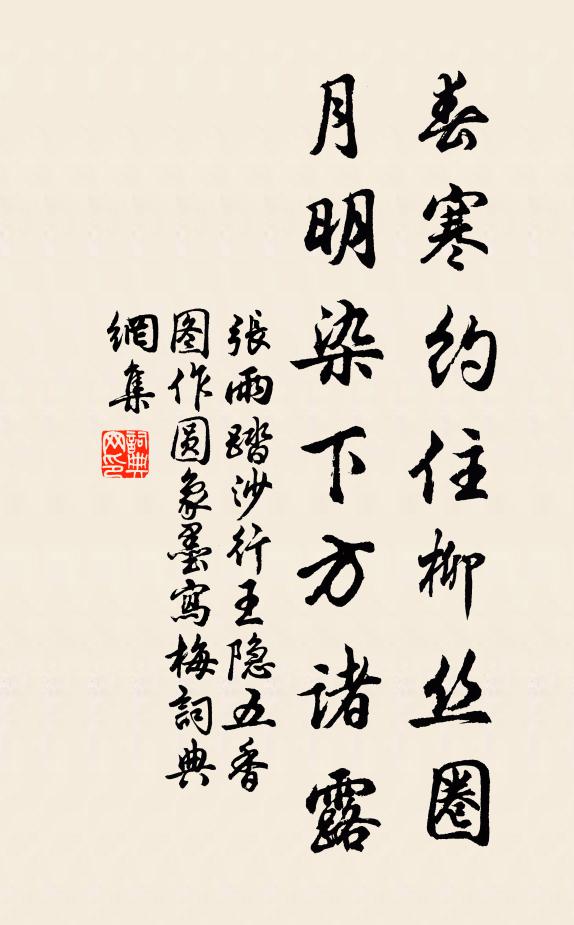 春寒約住柳丝圈
月明染下方诸露
張雨踏沙行王隐五香
图作圓象墨寫梅詞典
網集
詞典网印